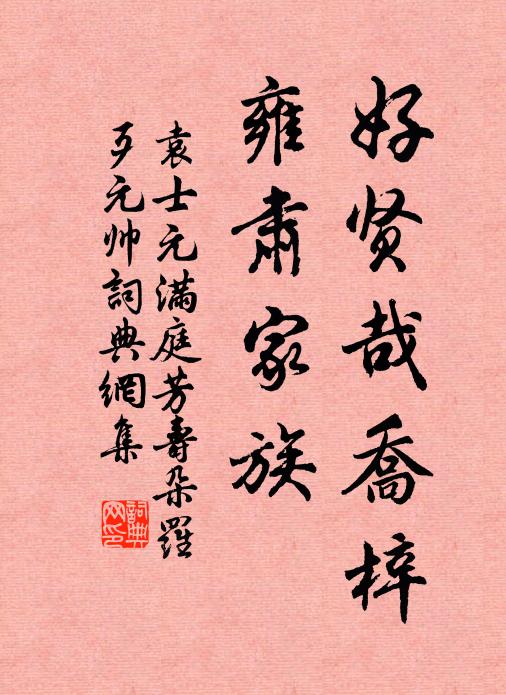 好贤哉喬梓
雍肅家族
袁士元滿庭芳壽朵羅
歹元帅詞典網集
詞典网印